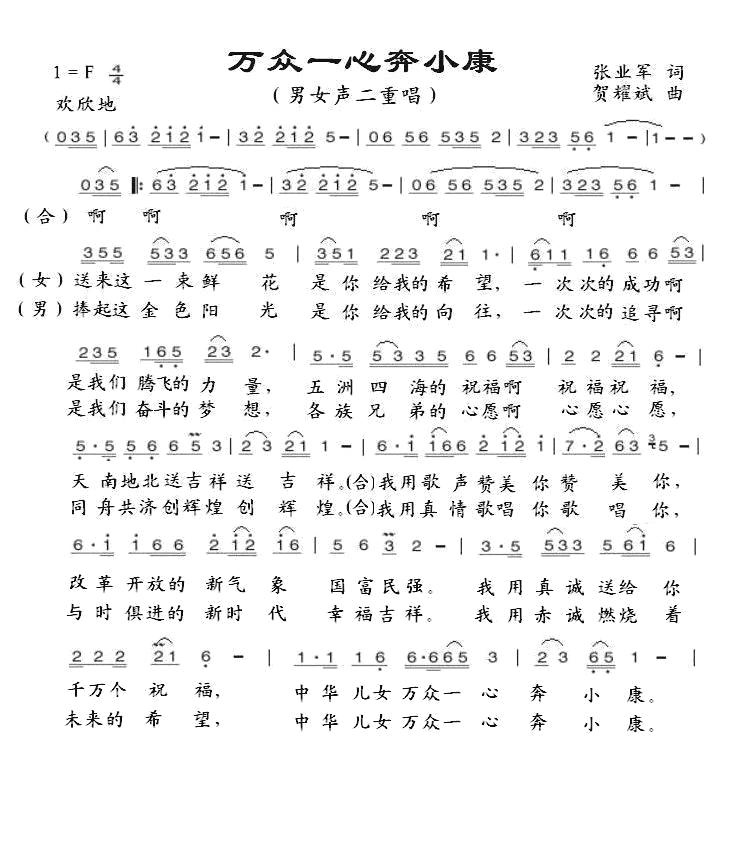 万众一心奔小康
1 = F 4/4
(男女声二重唱)
张业军 词
欢欣地
贺耀斌 曲
( 0 3 5 | 6 3 2 1 2 1 - | 3 2 2 1 2 5 - | 0 6 5 6 5 3 5 2 | 3 2 3 5 6 1 - | 1 - - )
0 3 5 ‖: 6 3 2 1 2 1 - | 3 2 2 1 2 5 - | 0 6 5 6 5 3 5 2 | 3 2 3 5 6 1 - |
(合) 啊 啊 啊 啊 啊
3 5 5 5 3 3 6 5 6 5 | 3 5 1 2 2 3 2 1 1 · | 6 1 1 1 6 6 6 5 3 |
(女) 送来这 一 束 鲜 花 是 你 给我的 希 望, 一 次次的 成功啊
(男) 捧起这 金 色 阳 光 是 你 给我的 向 往, 一 次次的 追寻啊
2 3 5 1 6 5 2 3 2 · | 5 · 5 5 3 5 5 6 6 5 3 | 2 2 2 1 6 - |
是我们 腾飞的 力 量, 五 洲 四 海的 祝福啊 祝 福 祝 福,
是我们 奋斗的 梦 想, 各 族 兄 弟的 心愿啊 心 愿 心 愿,
5 · 5 5 6 6 5 3 | 2 3 2 1 1 - | 6 · 1 1 6 6 2 2 1 2 1 | 7 · 2 6 3 5 - |
天 南地北送吉祥送 吉 祥。(合)我用歌 声赞美 你赞 美 你,
同 舟共济创辉煌创 辉 煌。(合)我用真 情歌唱 你歌 唱 你,
6 · 1 1 6 6 2 1 2 1 6 | 5 6 3 2 - | 3 · 5 5 3 3 5 6 1 6 |
改 革 开放的 新气 象 国富民强。 我 用 真 诚 送给 你
与 时 俱进的 新时 代 幸福吉祥。 我 用 赤 诚 燃烧 着
2 2 2 2 1 6 - | 1 · 1 1 6 6 · 6 6 5 3 | 2 3 6 5 1 - |
千万个 祝 福, 中 华 儿女 万众一 心 奔 小 康。
未来的 希 望, 中 华 儿女 万众一 心 奔 小 康。